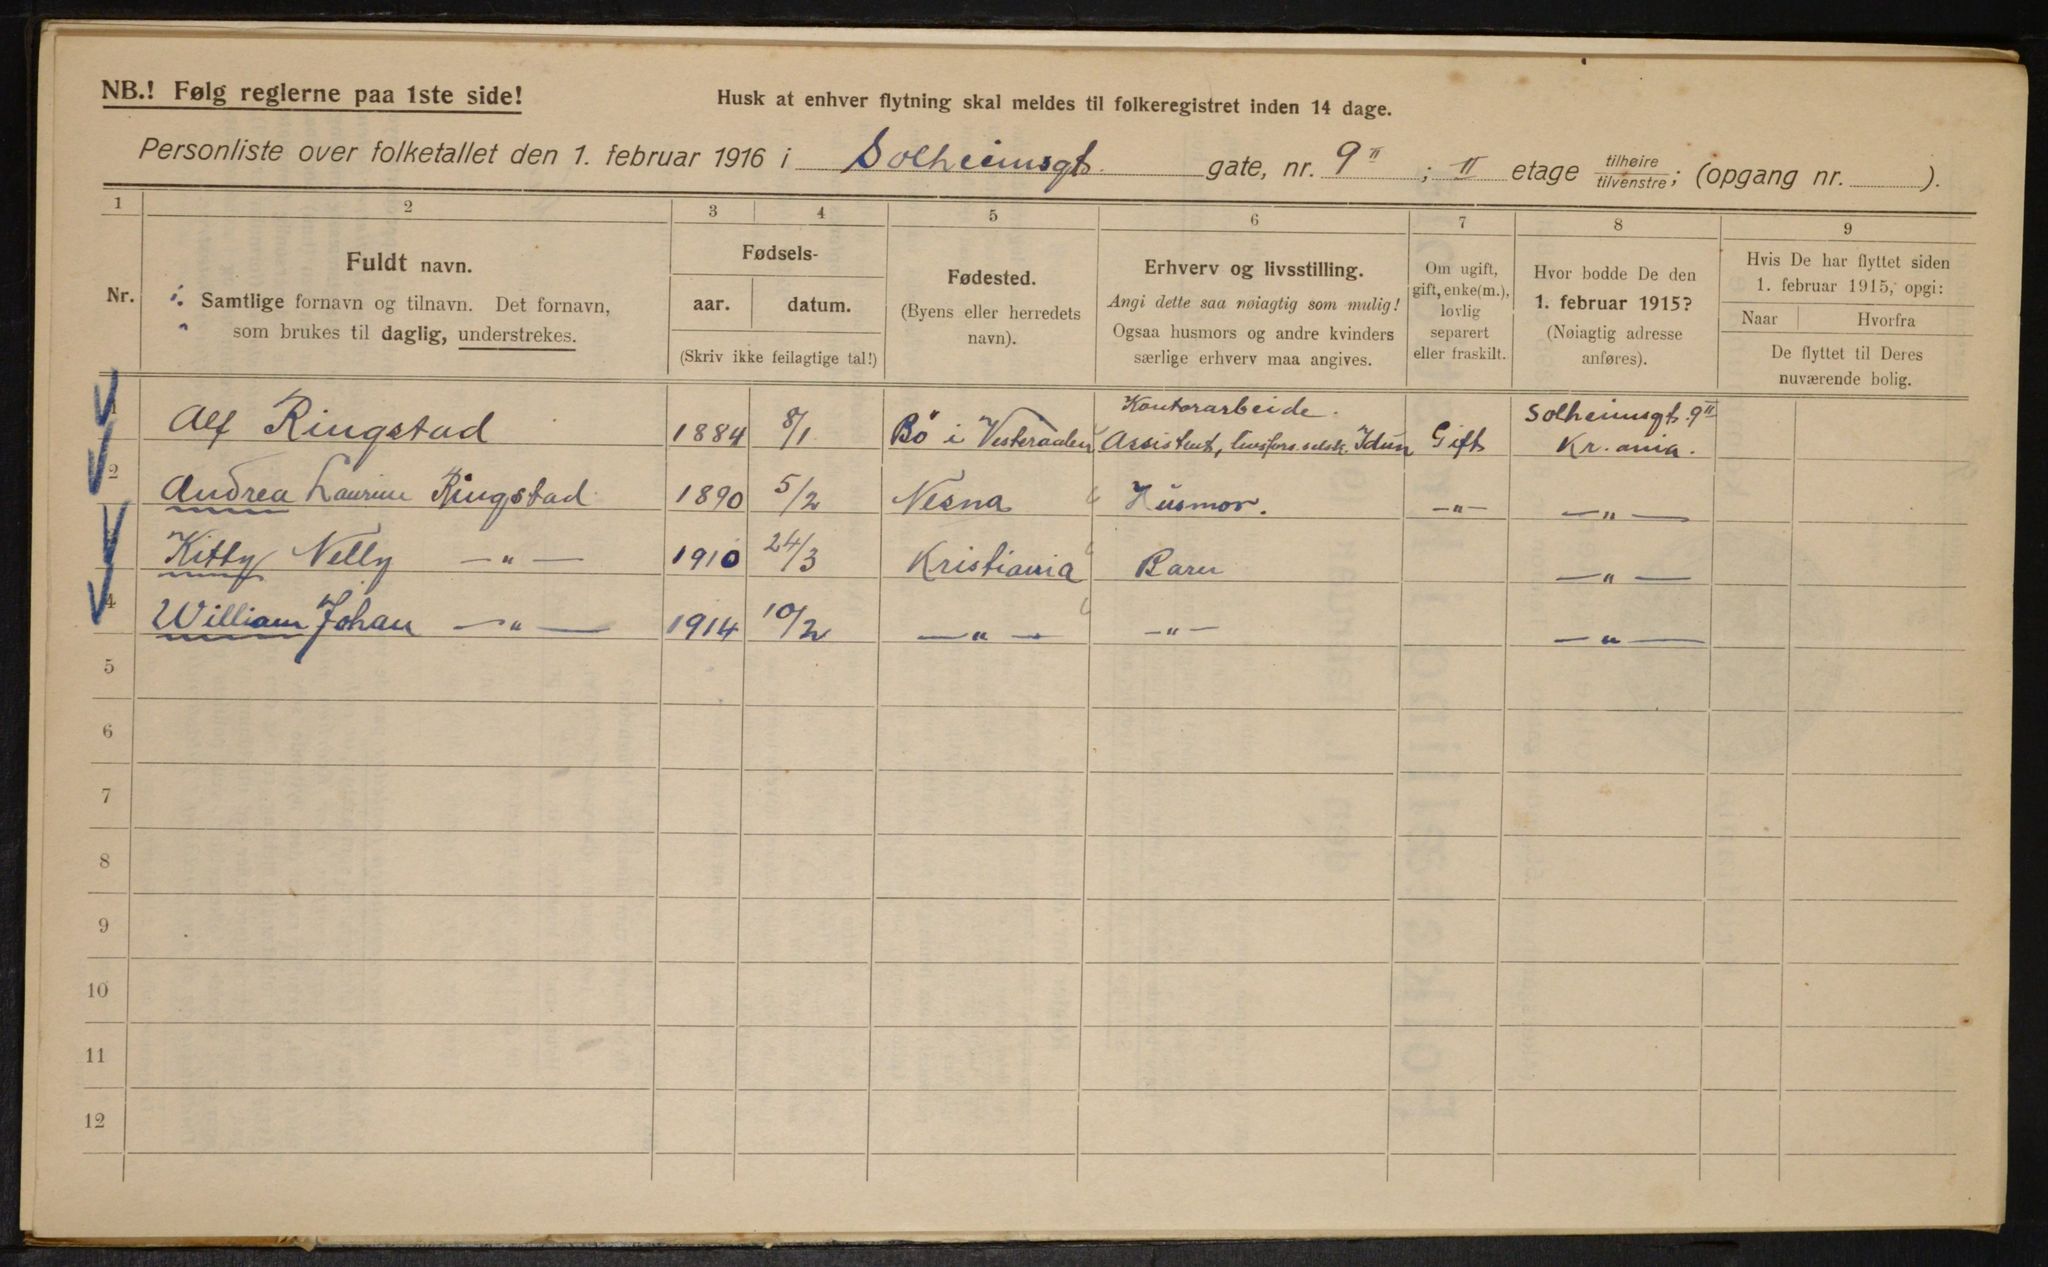 NB.! Følg reglerne paa 1ste side!
Husk at enhver flytning skal meldes til folkeregistret inden 14 dage.
Personliste over folketallet den 1. februar 1916 i Solheimsgt. gate, nr. 9 II ; II etage tilhøire tilvenstre; (opgang nr. ).
1 2 3 4 5 6 7 8 9
Nr.
Fuldt navn.
Samtlige fornavn og tilnavn. Det fornavn,
som brukes til daglig, understrekes.
Fødsels-
aar. datum.
(Skriv ikke feilagtige tal!)
Fødested.
(Byens eller herredets
navn).
Erhverv og livsstilling.
Angi dette saa nøiagtig som mulig!
Ogsaa husmors og andre kvinders
særlige erhverv maa angives.
Om ugift,
gift, enke(m.),
lovlig
separert
eller fraskilt.
Hvor bodde De den
1. februar 1915?
(Nøiagtig adresse
anføres).
Hvis De har flyttet siden
1. februar 1915, opgi:
Naar Hvorfra
De flyttet til Deres
nuværende bolig.
Kontorarbeide. Solheimsgt. 9 II
1 Alf Ringstad 1884 8/1 Bö i Vesteraalen Assistent, livsfors.selsk. Idun Gift Kr.ania.
2 Andrea Laurine Ringstad 1890 5/2 Nesna Husmor. —„— —„—
Kitty Nelly —„— 1910 24/3 Kristiania Barn —„—
4 William Johan —„— 1914 10/2 —„— —„— —„—
5
6
7
8
9
10
11
12